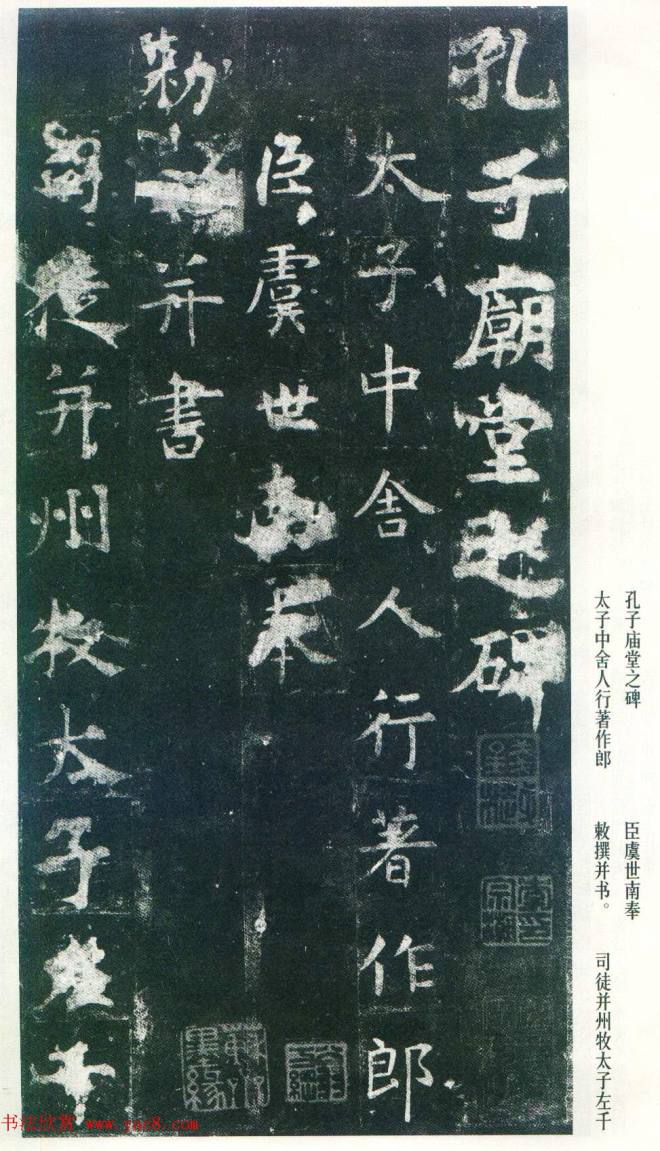 孔子廟堂之碑
太子中舍人行著作郎
臣虞世南奉
勑撰并書
司徒并州牧太子左千
孔子庙堂之碑
太子中舍人行著作郎
臣虞世南奉
敕撰并书。
司徒并州牧太子左千
书法欣赏 www.yac8.com